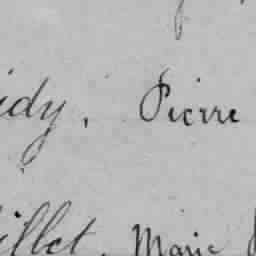 idy, Pierre
illet, Marie